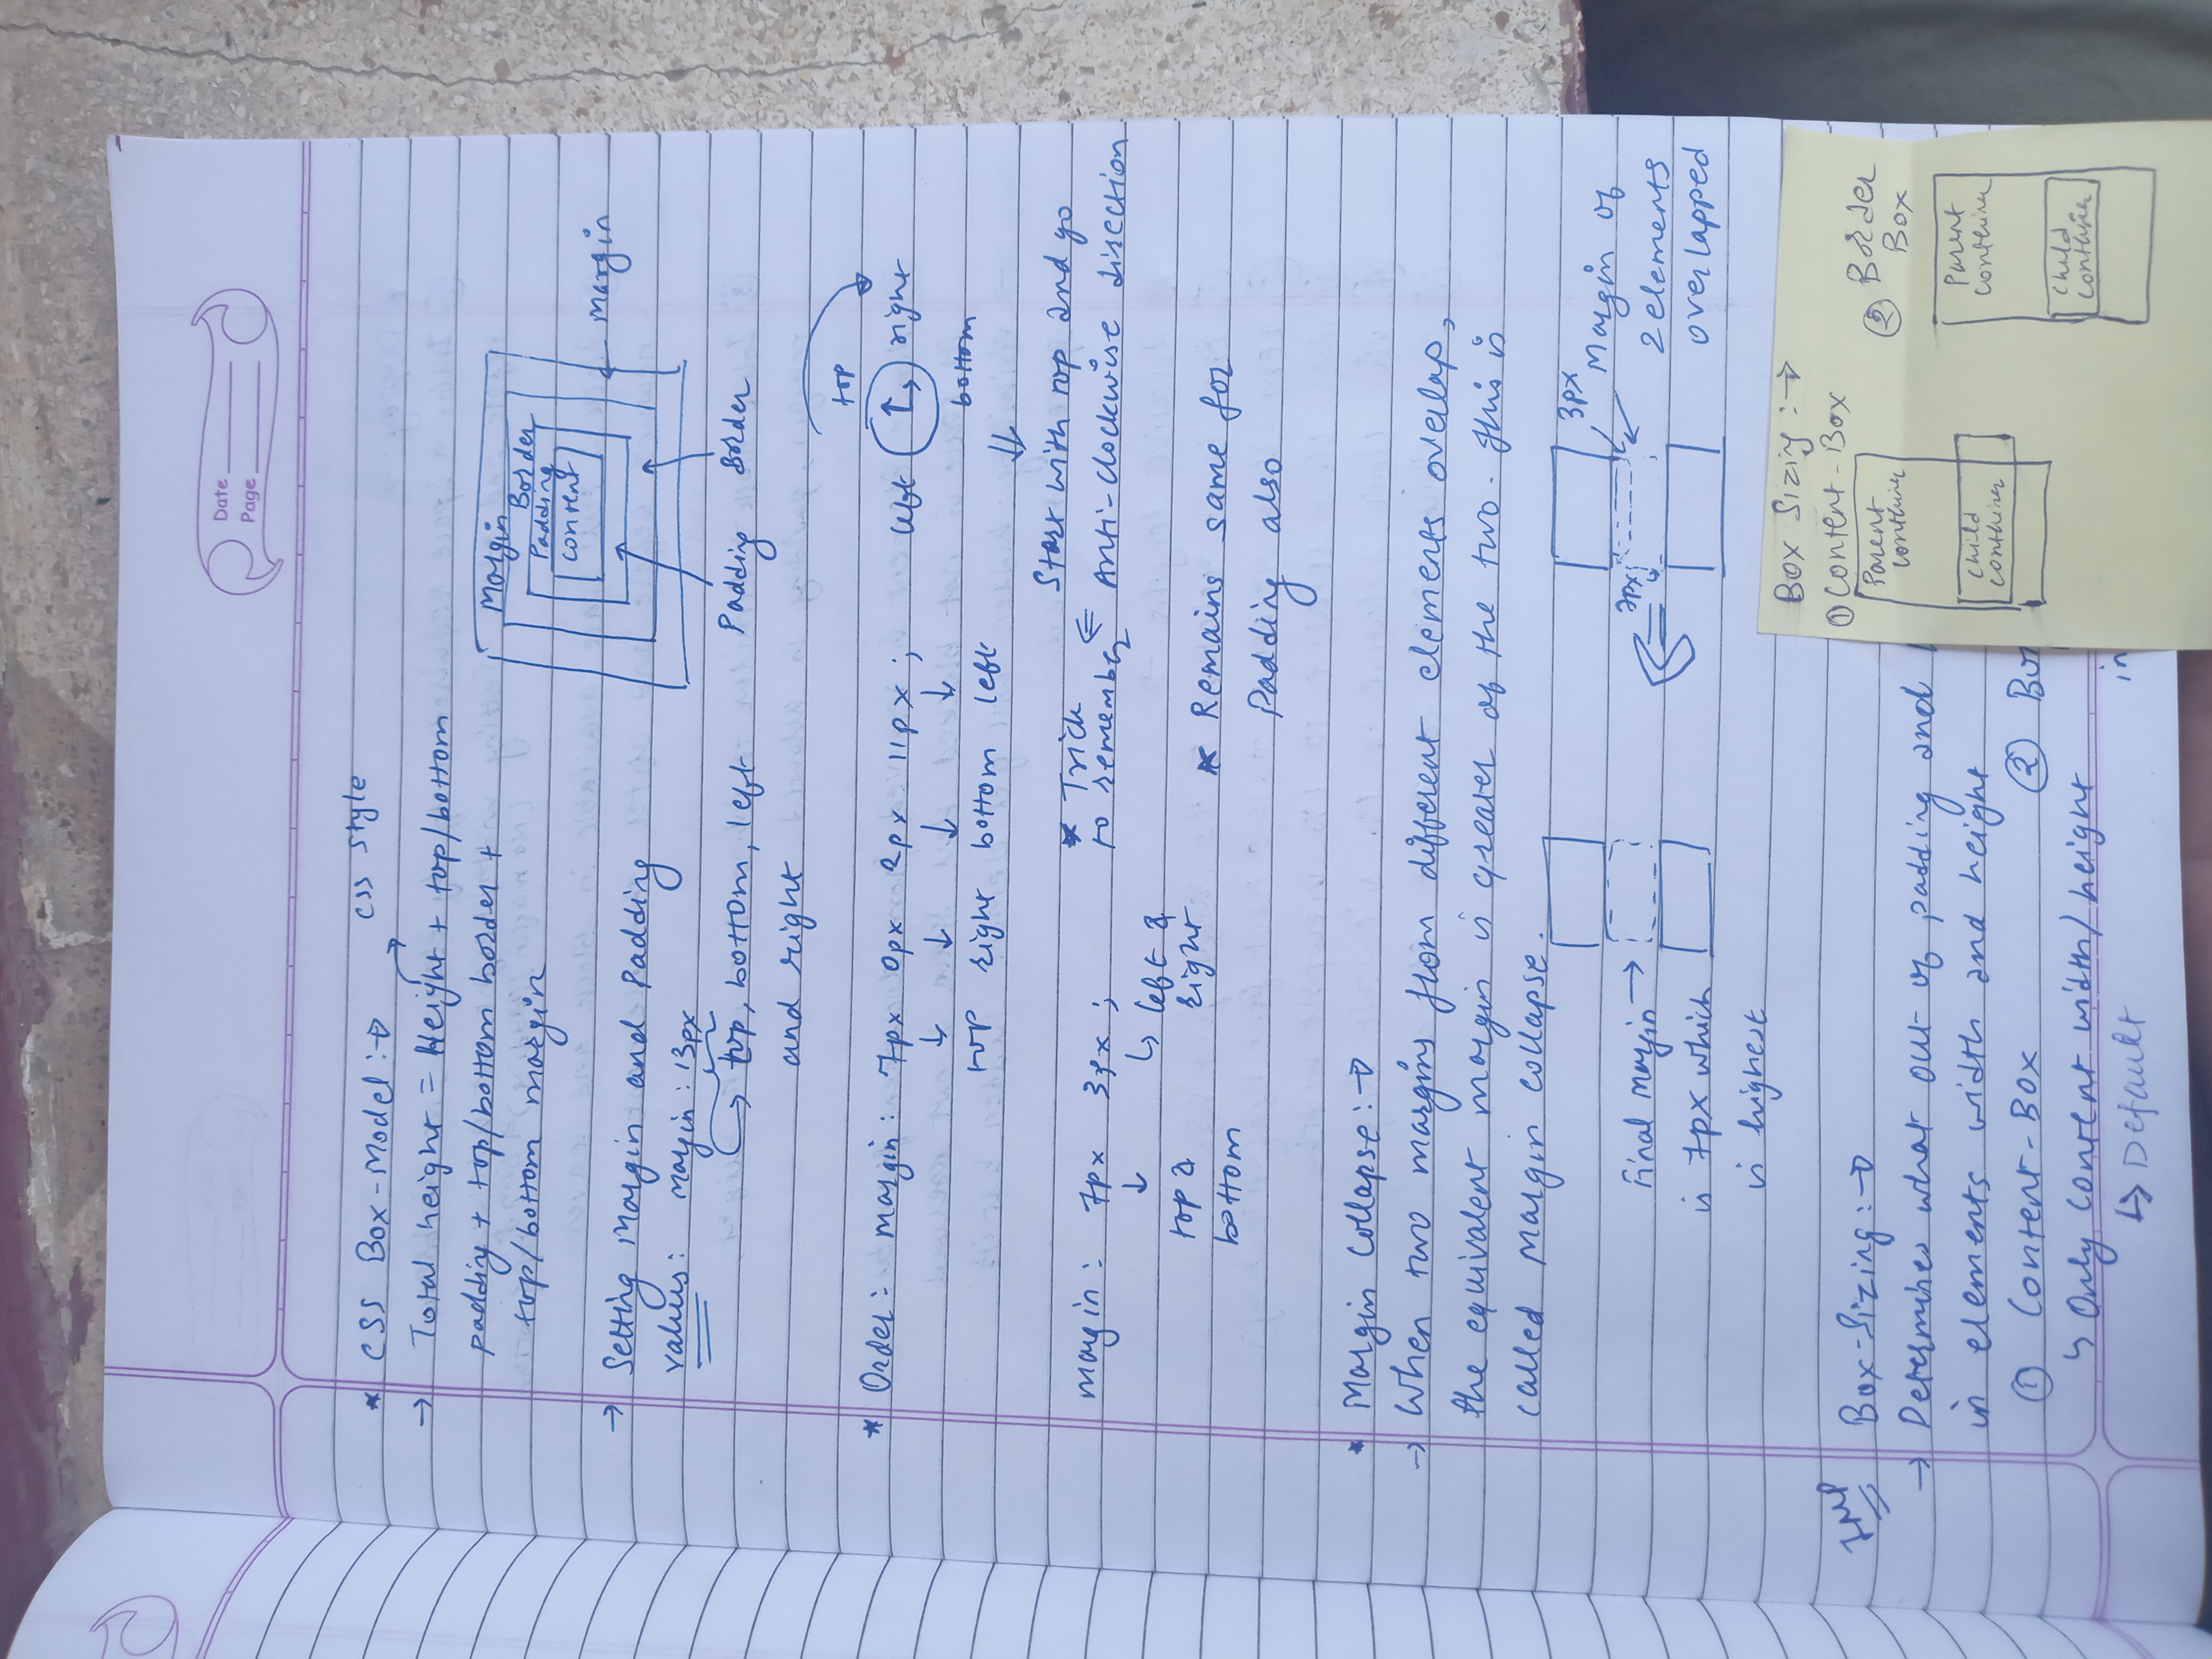 Date
Page
* CSS Box-Model :→
css style
→ Total height = Height + top/bottom
padding + top/bottom border +
top/bottom margin
Margin
Border
Padding
content
margin
Padding Border
→ Setting Margin and Padding
values : margin : 13px
top, bottom, left
and right
* Order :- margin : 7px 0px 2px 11px ;
top right bottom left
top
left right
bottom
Start with top and go
Anti-clockwise direction
* Trick
to remember
margin : 7px 3px ;
top &
bottom
left &
right
* Remains same for
Padding also
* Margin Collapse :→
→ When two margins from different elements overlap,
the equivalent margin is greater of the two. This is
called Margin collapse.
Final margin →
is 7px which
is highest
3px
7px
Margin of
2 elements
overlapped
IMP
Box-Sizing :→
→ Determines what out of padding and
in elements width and height
① Content-Box
↳ Only content width/height
↳ Default
② Bo
in
Box Sizing :→
① Content-Box
Parent
container
child
container
② Border
Box
Parent
container
child
container